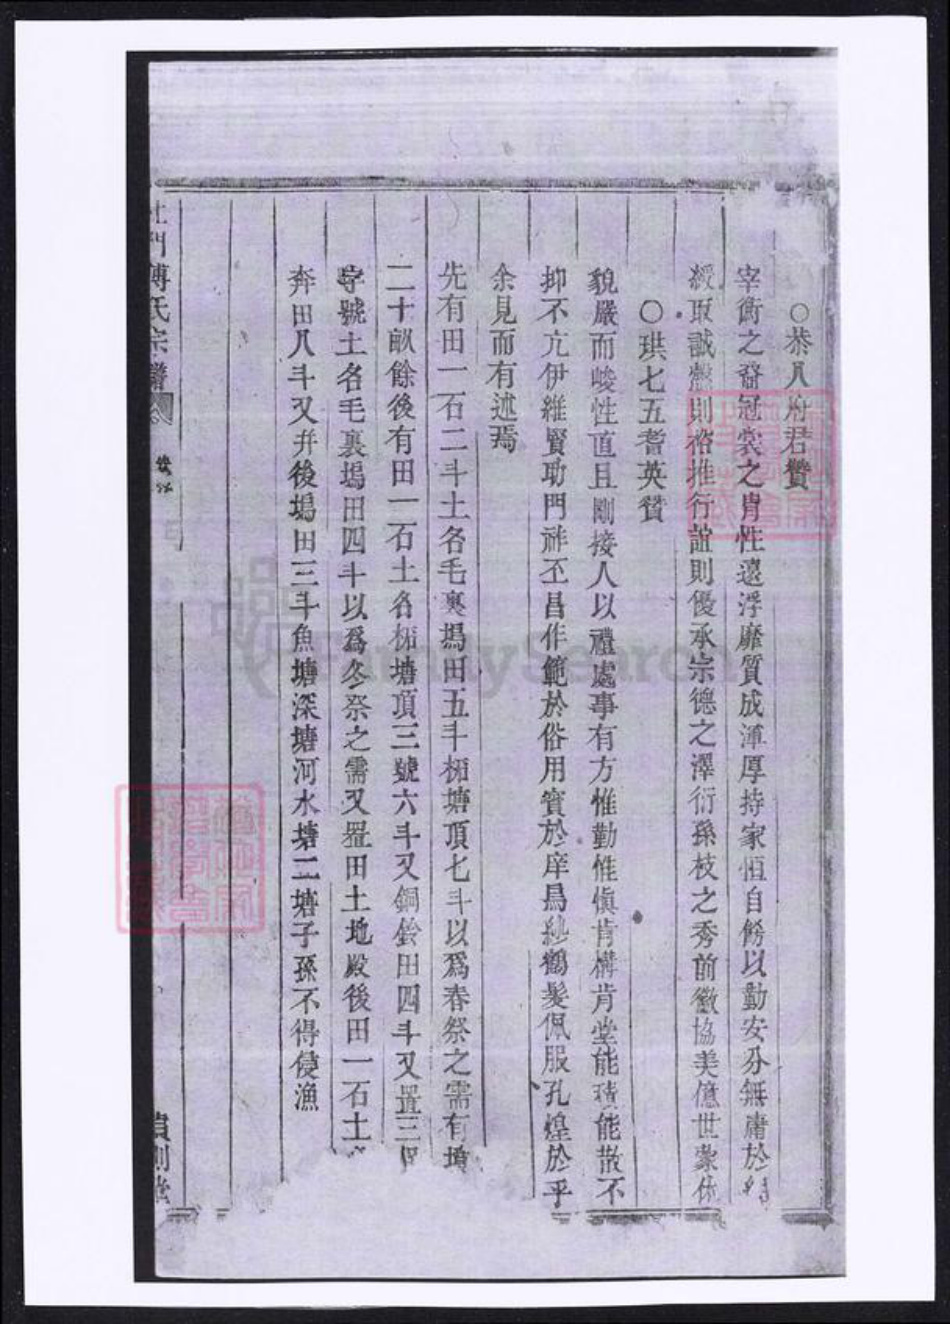 ○恭八府君贊
宰衡之裔冠裳之胄性遠浮靡質成渾厚持家恒自餝以勤安分無庸於
綬取誠慤則裕推行誼則優承宗德之澤衍孫枝之秀前徽協美億世蒙休
○珙七五耆英贊
貌嚴而峻性直且剛接人以禮處事有方惟勤惟慎肯構肯堂能積能散不
抑不亢伊維賢助門祚丕昌作範於俗用賓於庠烏紗鶴髮佩服孔煌於乎
余見而有述焉
先有田一石二斗土名毛裏塢田五斗栃塘頂七斗以爲春祭之需有墳
二十畝餘後有田一石土名栃塘頂三號六斗又銅鈴田四斗又置三
字號土名毛裏塢田四斗以爲冬祭之需又置田土地殿後田一石土
奔田八斗又弁後塢田三斗魚塘深塘河水塘二塘子孫不得侵漁
杜門傅氏宗譜
貽則堂
FamilySearch